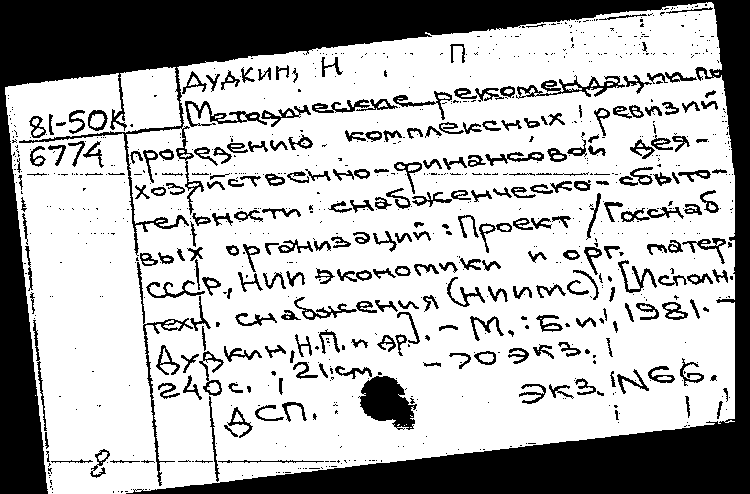 Дудкин, Н. П
81-50К. Методические рекомендации по
6774 проведению комплексных ревизий
хозяйственно-финансовой дея-
тельности снабженческо-сбыто-
вых организаций: Проект / Госснаб
СССР, НИИ экономики и орг. матер.-
техн. снабжения (НИИМС); [Исполн.
Дудкин, Н.П. и др.]. – М.: Б.и., 1981. –
240 с. ; 21 см. – 70 экз.
ДСП. экз. N66.
8